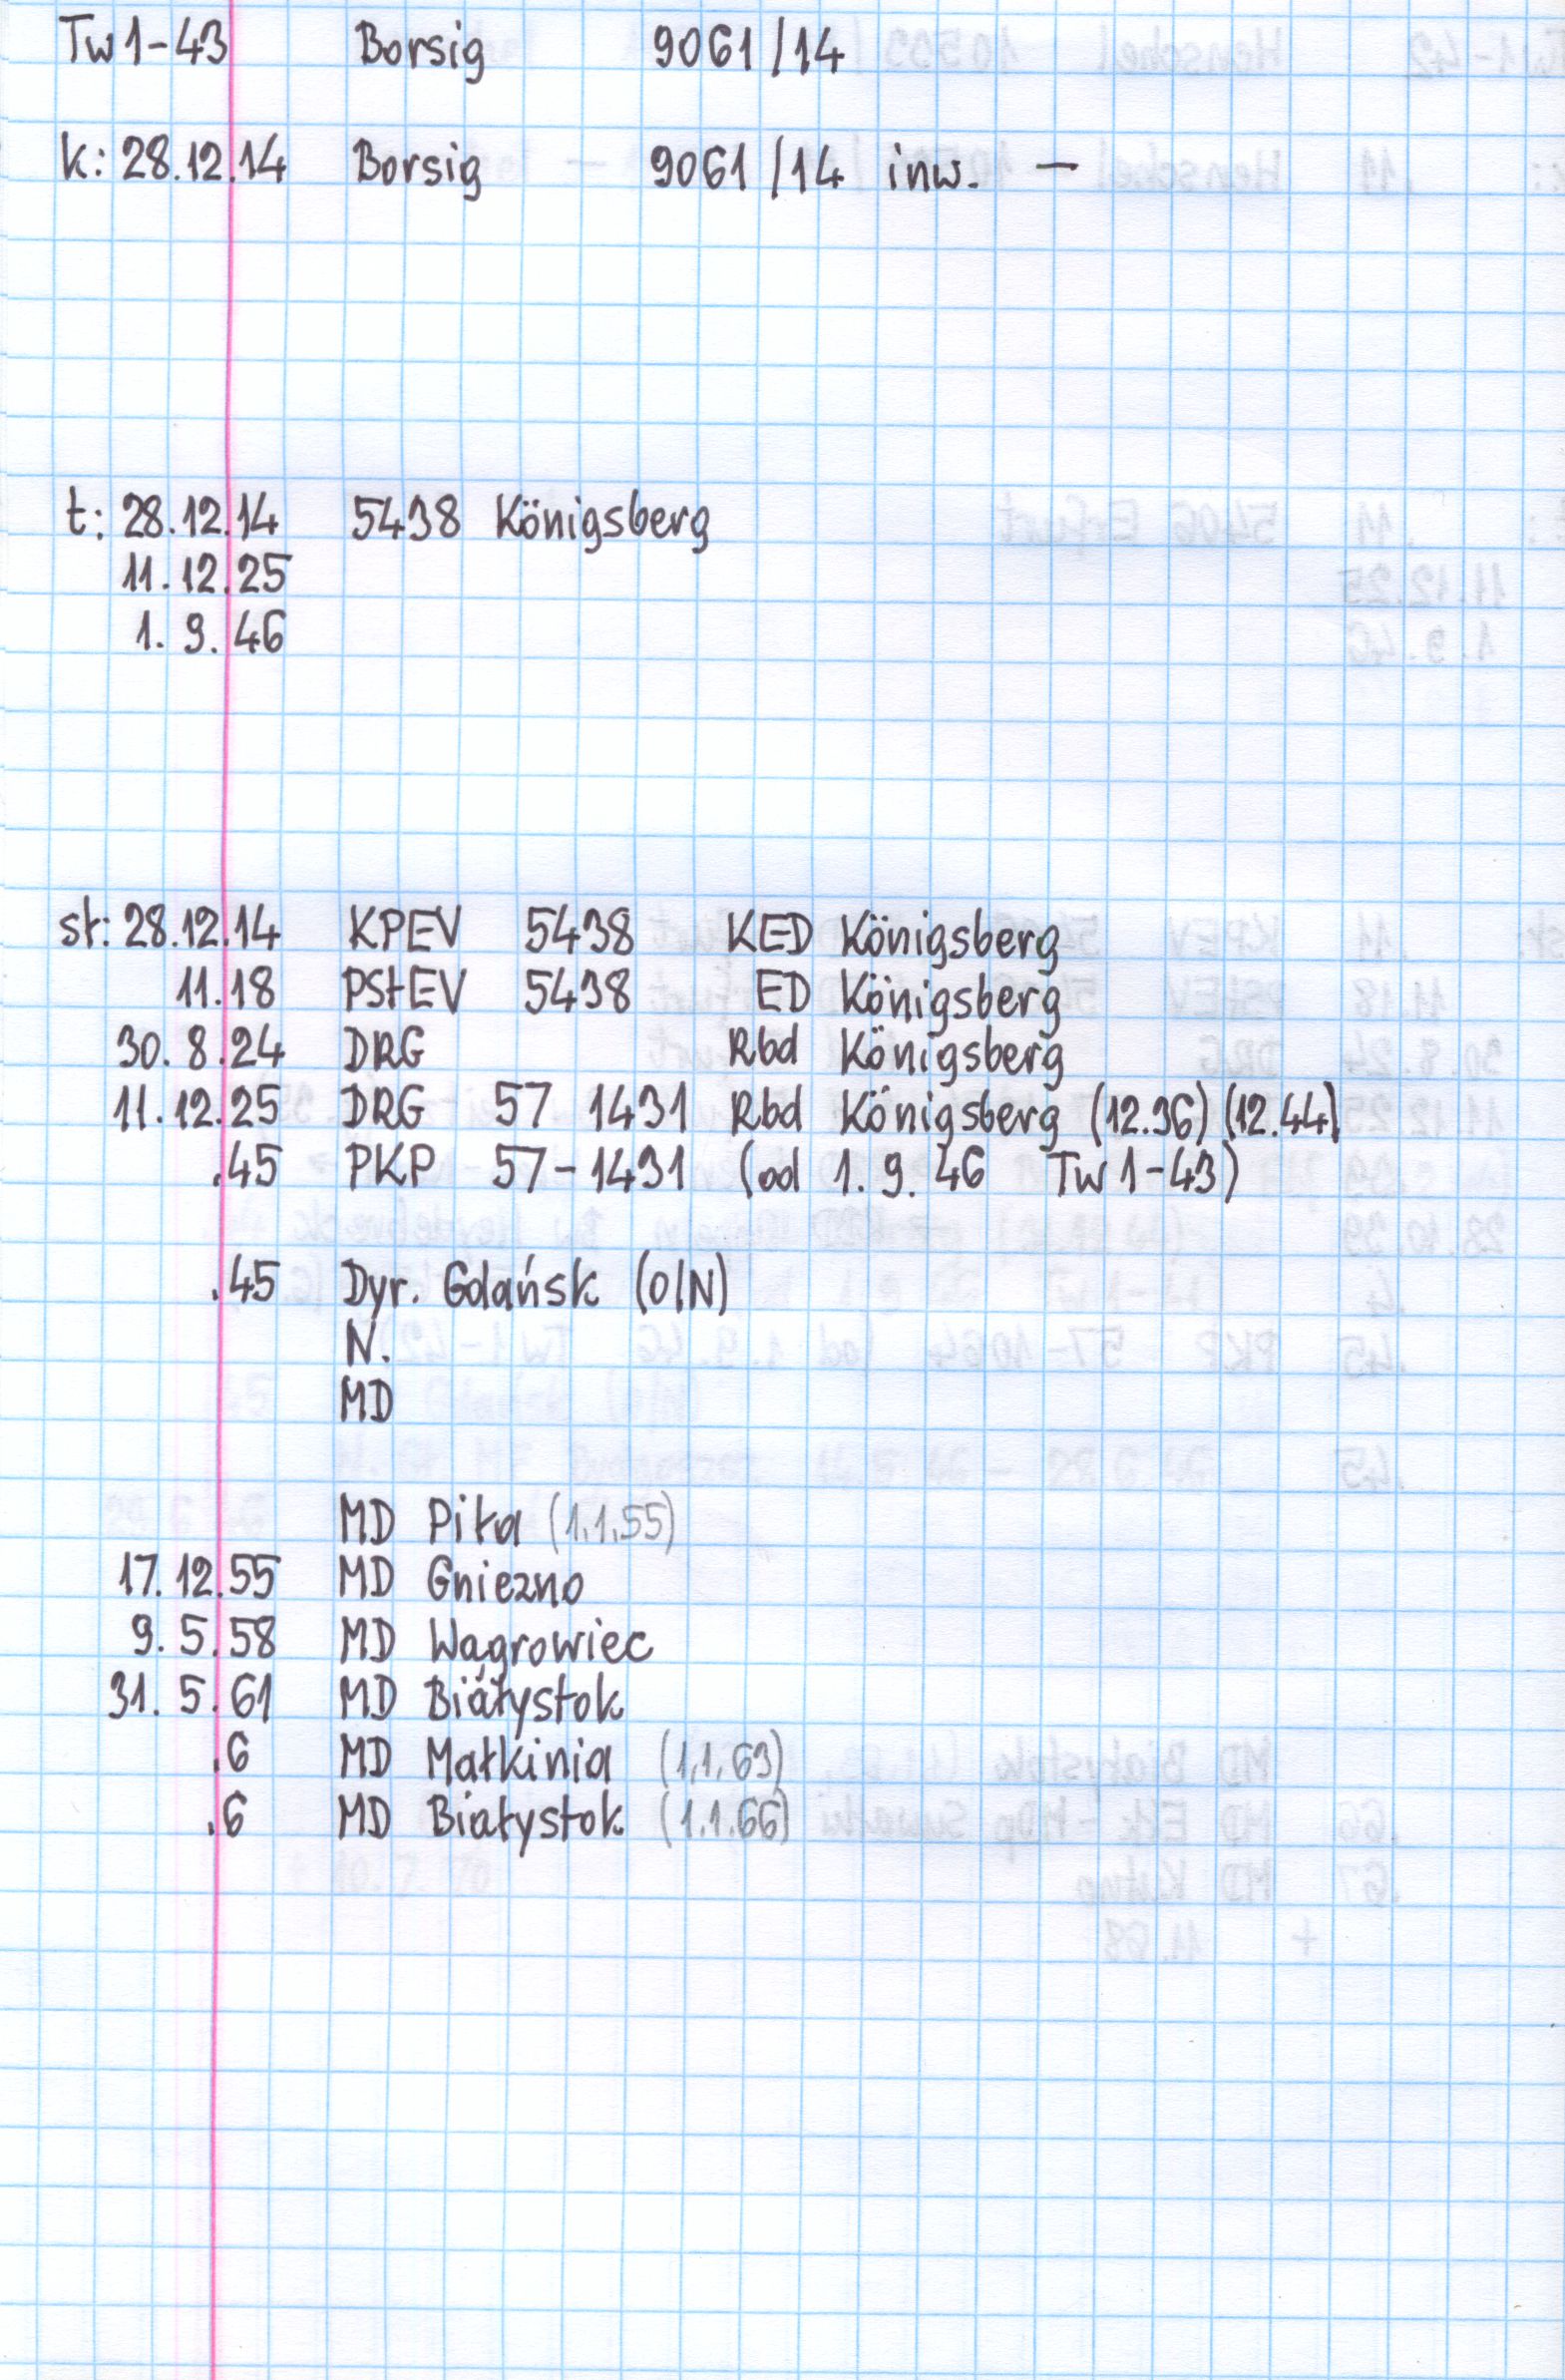 Tw 1-43 Borsig 9061/14
k: 28.12.14 Borsig 9061/14 inw. —
t: 28.12.14 5438 Königsberg
11.12.25
1. 9. 46
st: 28.12.14 KPEV 5438 KED Königsberg
11.18 PStEV 5438 ED Königsberg
30. 8.24 DRG Rbd Königsberg
11.12.25 DRG 57 1431 Rbd Königsberg (12.36) (12.44)
.45 PKP 57-1431 (od 1. 9. 46 Tw 1-43)
.45 Dyr. Gdańsk (O/N)
N.
MD
MD Piła (1.1.55)
17.12.55 MD Gniezno
9. 5.58 MD Wągrowiec
31. 5.61 MD Białystok
.6 MD Małkinia (1.1.63)
.6 MD Białystok (1.1.66)